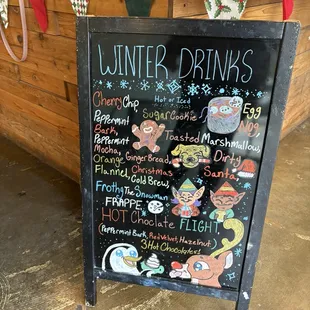 WINTER DRINKS
Hot or Iced
Cherry Chip
Sugar Cookie
Egg
Nog
Peppermint
Bark,
Peppermint
Mocha,
Toasted Marshmallow,
Orange Ginger Bread,
Christmas
Dirty
Santa,
Flannel, Cold Brews
Frothy The Snowman
FRAPPE
HOT Choclate FLIGHT
(Peppermint Bark, Red Velvet, Hazelnut)
3 Hot Chocolates!